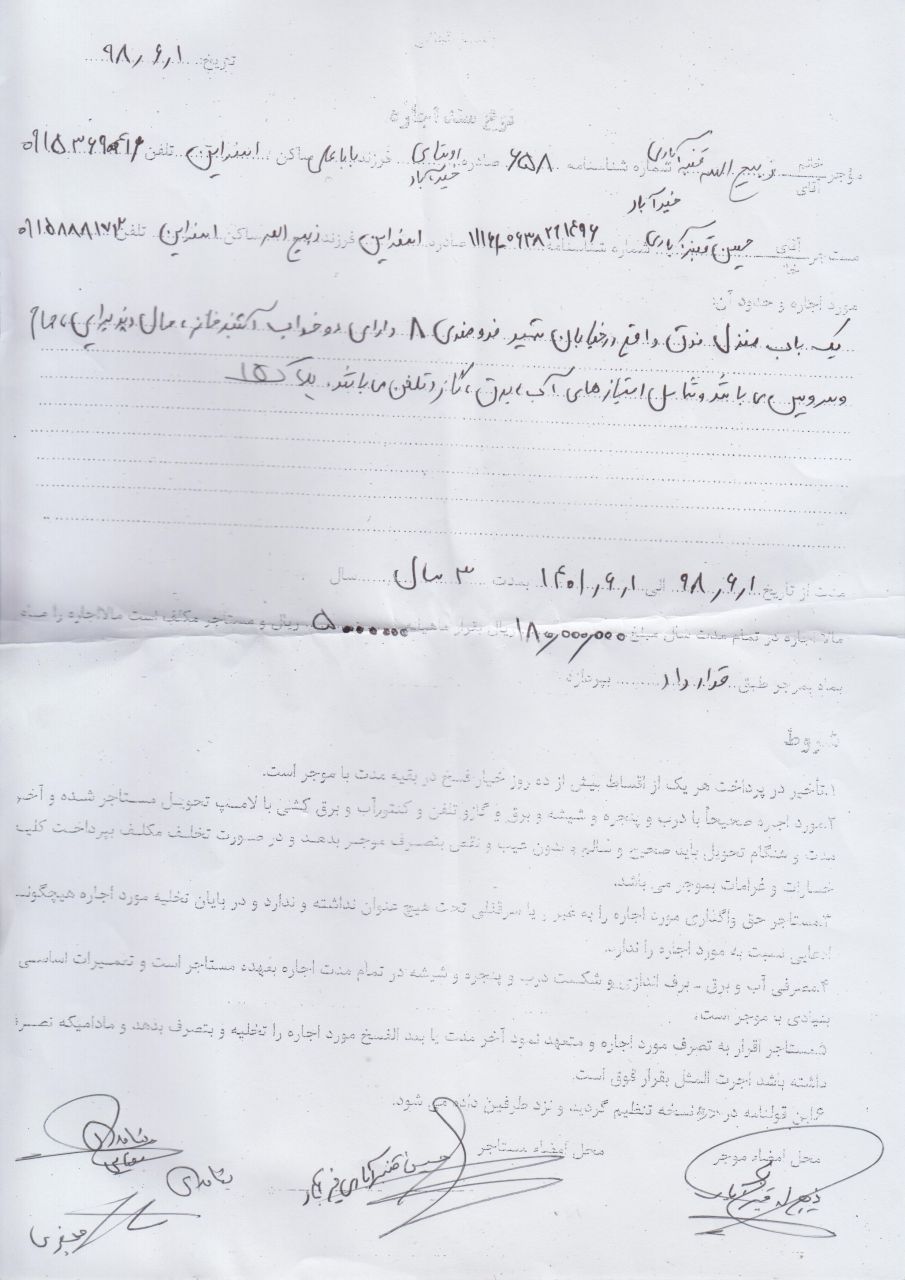 تاریخ: ۹۸٫۶٫۱
فرم سند اجاره
مؤجر خانم آقای ذبیح الله قنبرآبادی خیرآباد شماره شناسنامه ۶۵۸ صادره خیرآباد فرزند باباعلی ساکن اسفراین تلفن
مستاجر آقای خانم حسین قنبرآبادی شماره شناسنامه صادره اسفراین فرزند ذبیح الله ساکن اسفراین تلفن ۰۹۱۵۸۸۸۱۷۳
مورد اجاره و حدود آن:
یک باب منزل فوق واقع در خیابان شهید ۸ دارای دو خواب، آشپزخانه، هال و پذیرایی، حمام
و سرویس می باشد و شامل امتیازهای آب، برق، گاز و تلفن می باشد. پلاک ۱۵
مدت از تاریخ ۹۸٫۶٫۱ الی ۱۴۰۱٫۶٫۱ بمدت ۳ سال سال
مال الاجاره در تمام مدت سال مبلغ ۱۸۰٫۰۰۰٫۰۰۰ ریال بقرار ماهیانه ۵۰۰۰۰۰۰ ریال و مستاجر مکلف است مالالاجاره را ماه
بماه بموجر طبق قرار داد بپردازد
شروط
۱.تأخیر در پرداخت هر یک از اقساط بیش از ده روز خیار فسخ در بقیه مدت با موجر است.
۲.مورد اجره صحیحاً با درب و پنجره و شیشه و برق و گازو تلفن و کنتورآب و برق کشی با لامپ تحویل مستاجر شده و آخر
مدت و هنگام تحویل باید صحیح و سالم و بدون عیب و نقص بتصرف موجر بدهد و در صورت تخلف مکلف بپرداخت کلیه
خسارات و غرامات بموجر می باشد.
۳.مستاجر حق واگذاری مورد اجاره را به غیر و یا سرقفلی تحت هیچ عنوان نداشته و ندارد و در پایان تخلیه مورد اجاره هیچگونه
ادعایی نسبت به مورد اجاره را ندارد.
۴.مصرفی آب و برق ـ برف اندازی و شکست درب و پنجره و شیشه در تمام مدت اجاره بعهده مستاجر است و تعمیرات اساسی
بنیادی با موجر است.
۵.مستاجر اقرار به تصرف مورد اجاره و متعهد نمود آخر مدت یا بعد الفسخ مورد اجاره را تخلیه و بتصرف بدهد و مادامیکه تصرف
داشته باشد اجرت المثل بقرار فوق است.
۶.این قولنامه در نسخه تنظیم گردید و نزد طرفین داده می شود.
محل امضاء موجر
محل امضاء مستاجر
حسین قنبرآبادی خیرآباد